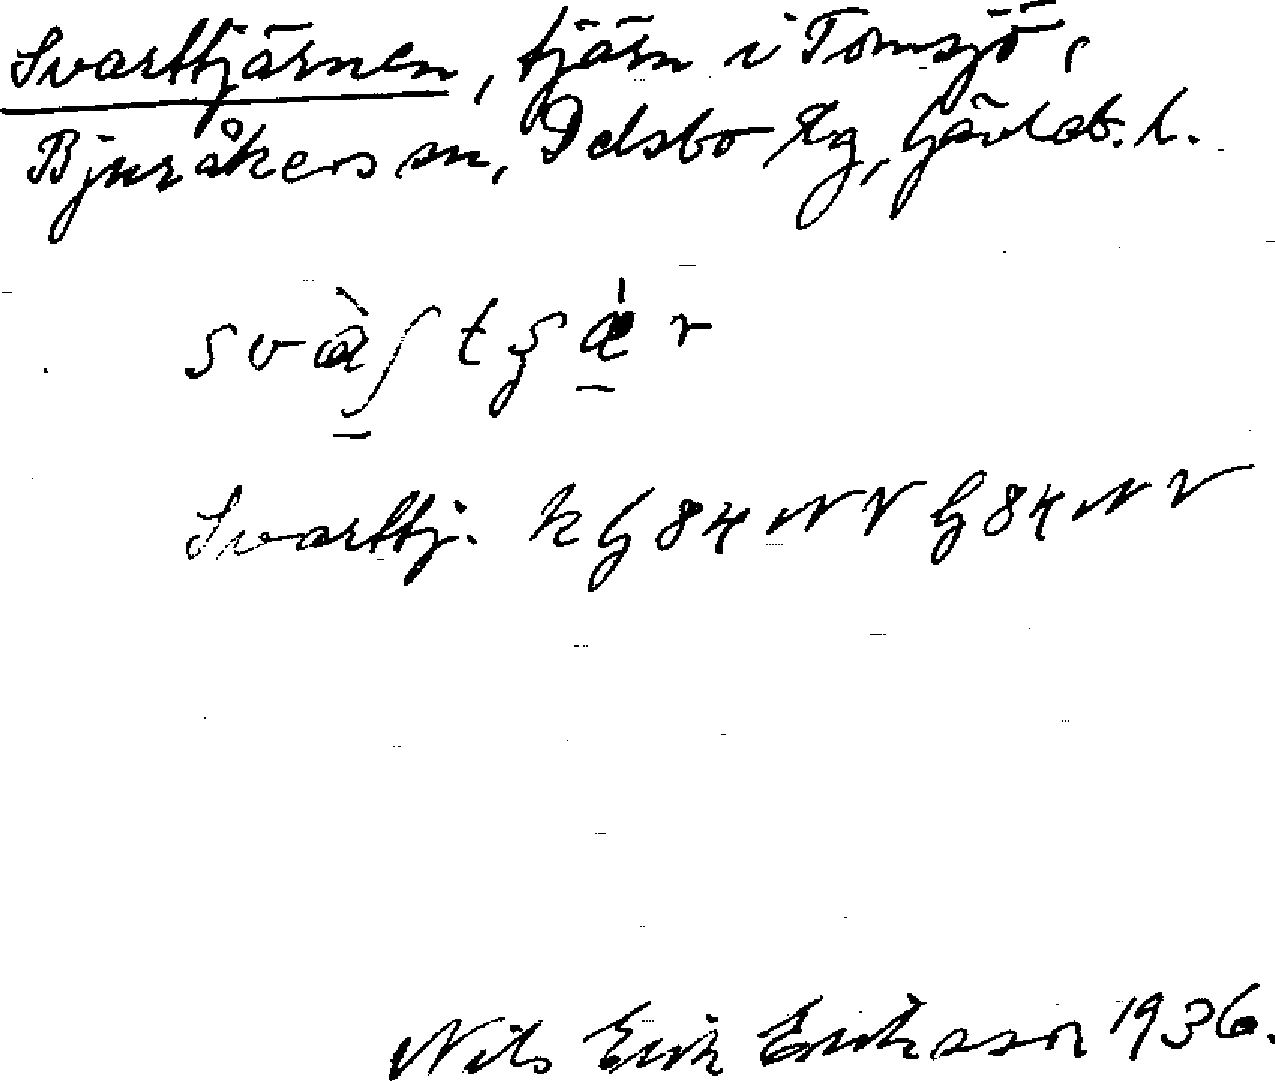 Svarttjärnen, tjärn i Tomsjö,
Bjuråkers sn, Delsbo tg, Gävleb. l.
Svarttj. k G 84 NV G 84 NV
Nils Erik Eriksson 1936.